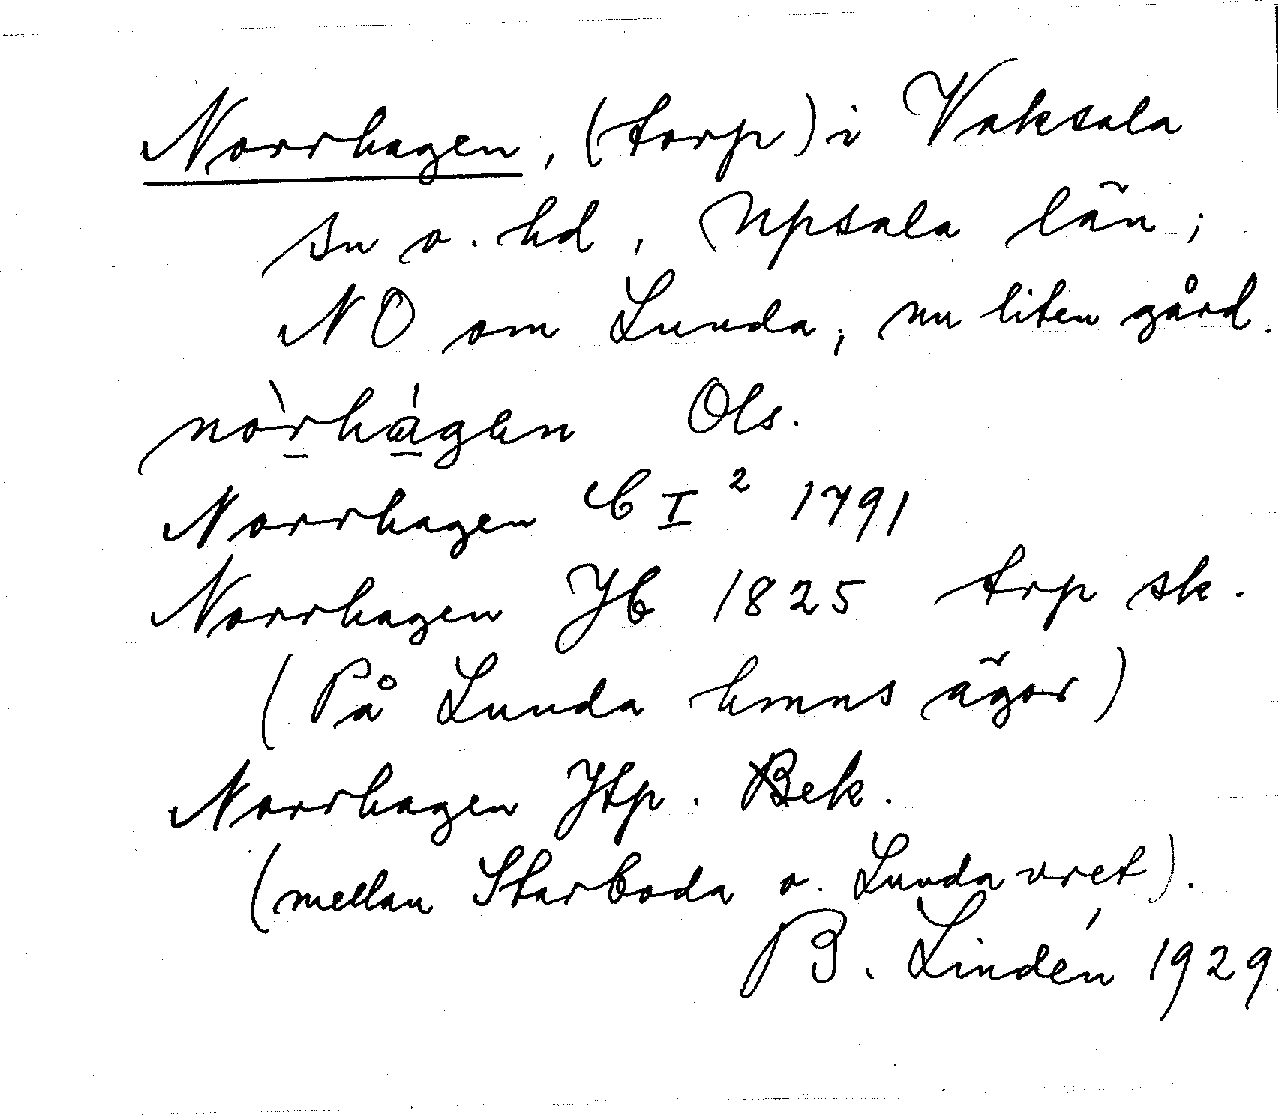 Norrhagen, (torp) i Vaksala
sn o. hd, Upsala län;
NO om Lunda, nu liten gård.
nòrhágen Ols.
Norrhagen C I² 1791
Norrhagen Jb 1825 trp sk.
(På Lunda hmns ägor)
Norrhagen Jtp. Bek.
(mellan Starboda o. Lundavret).
B. Lindén 1929